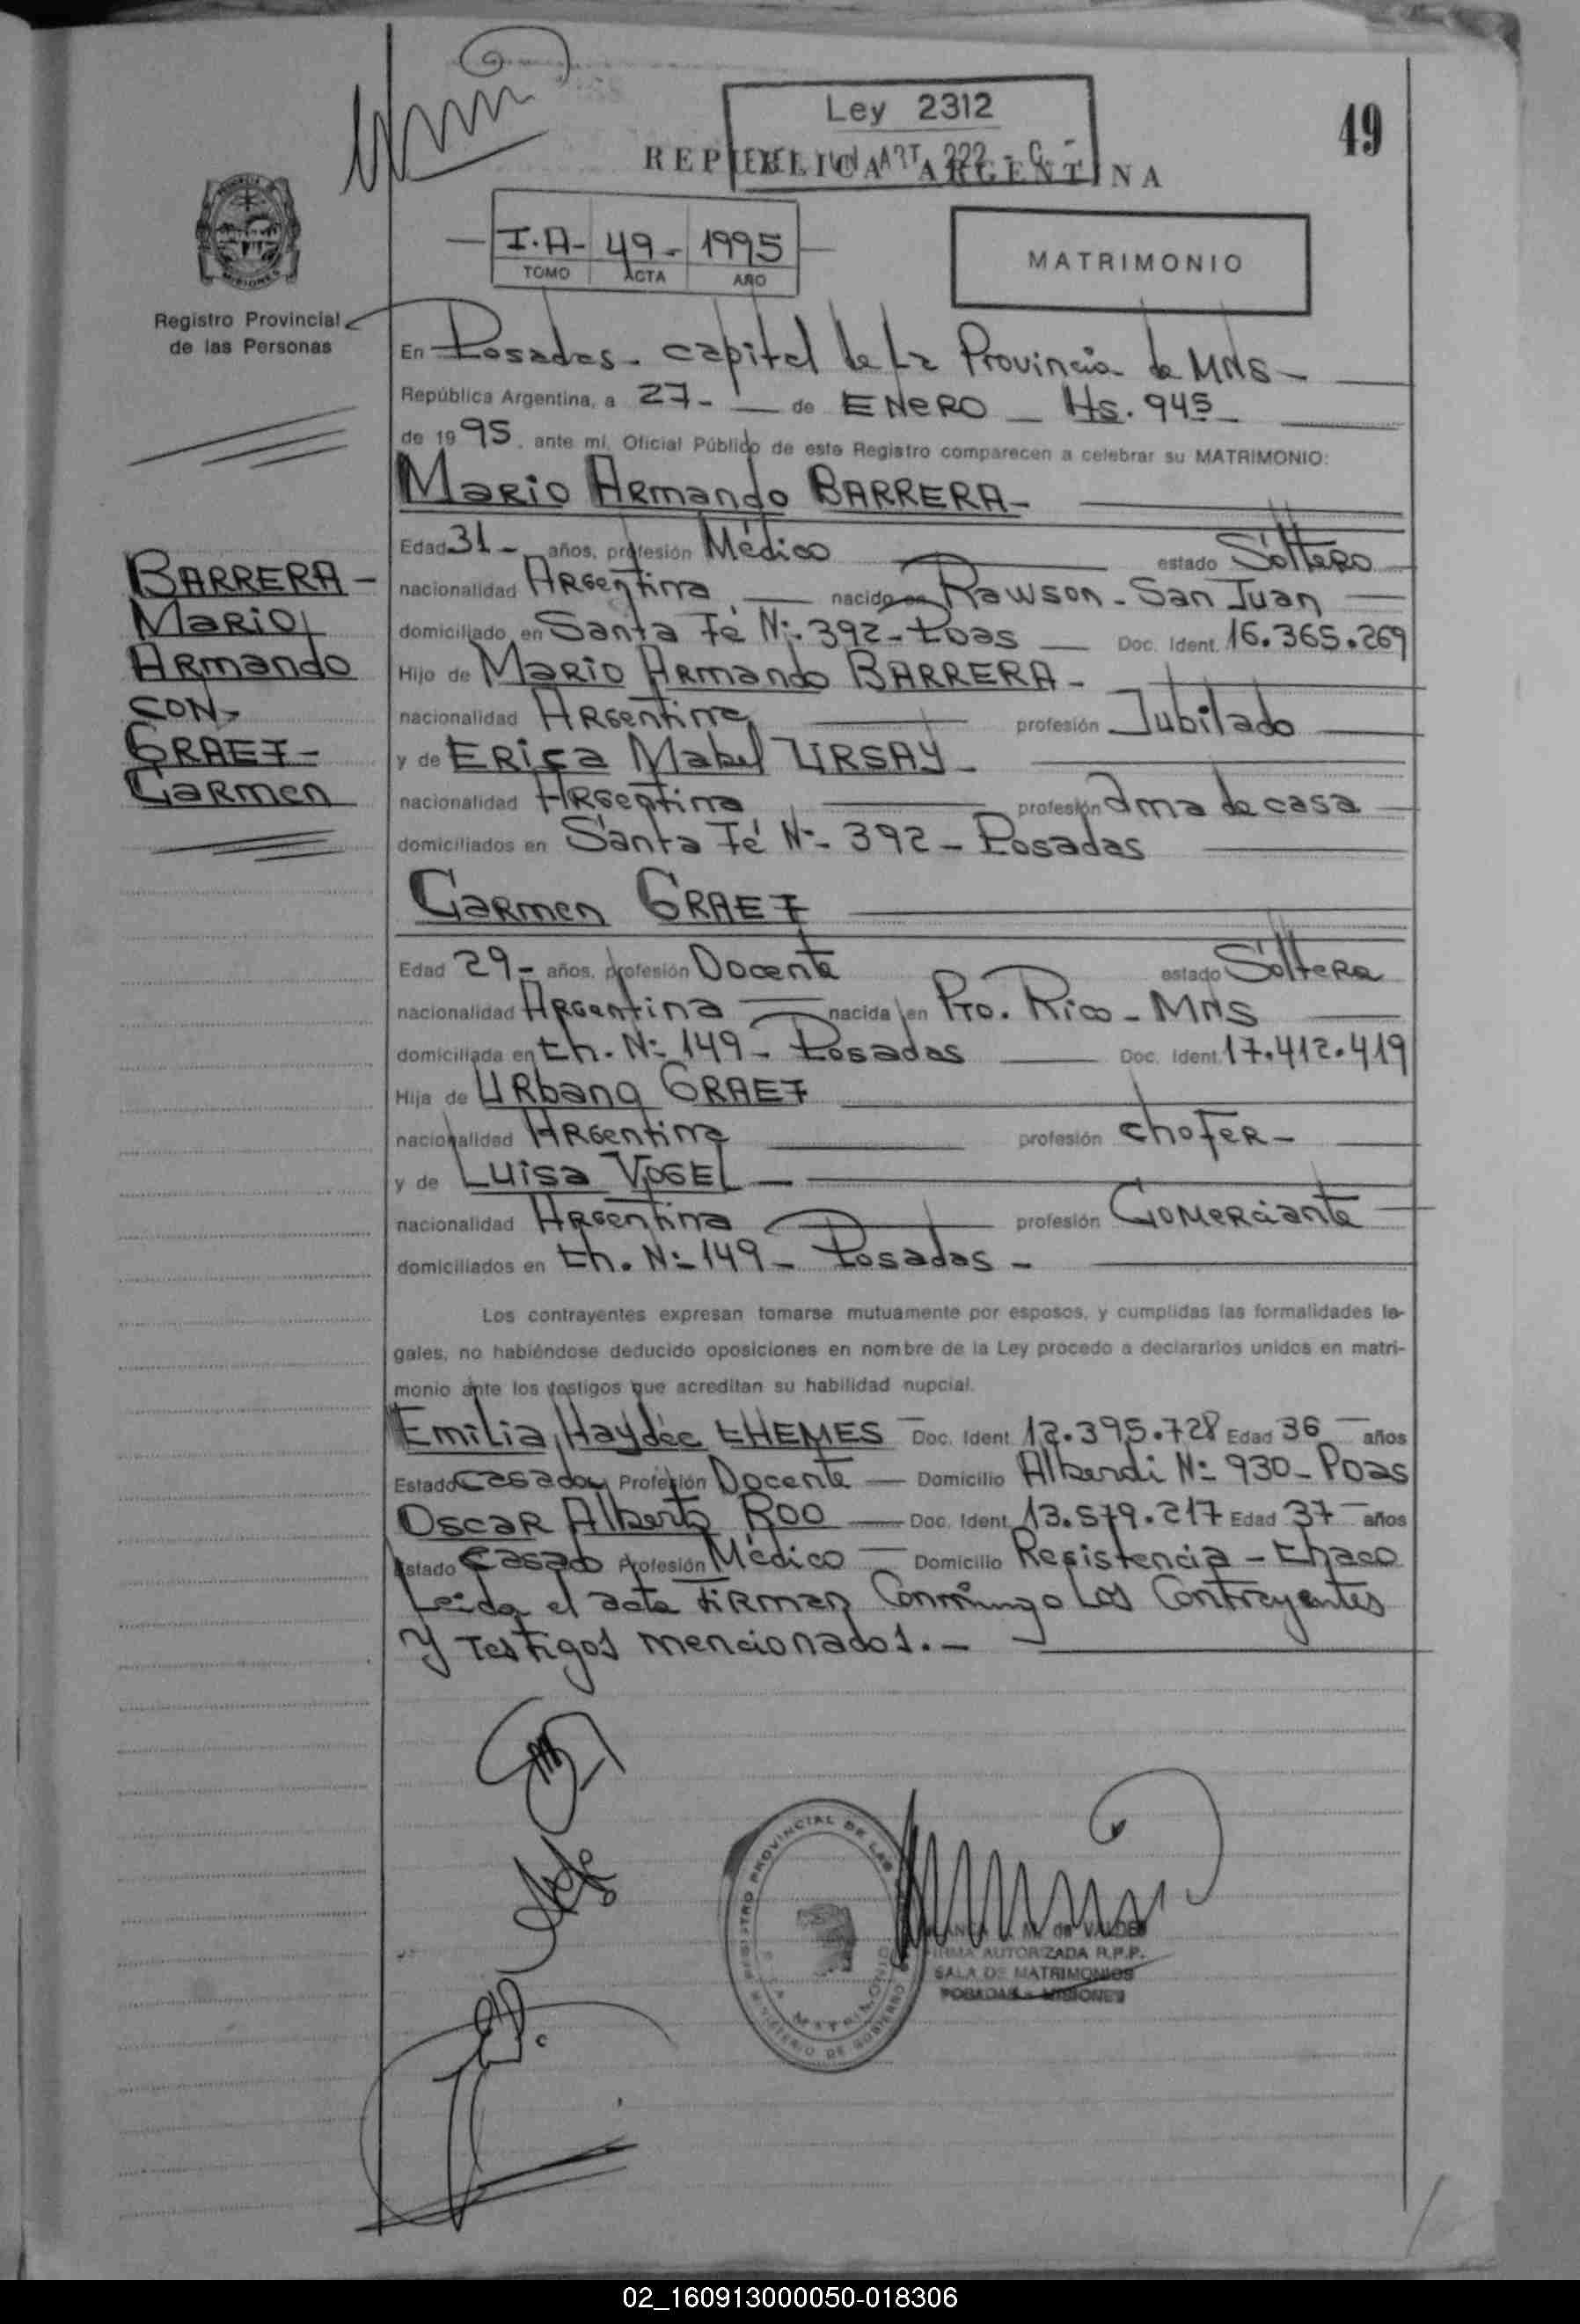 Ley 2312
49
REPUBLICA ARGENTINA
ART. 222 - C.
I.A- 49- 1995
TOMO ACTA AÑO
MATRIMONIO
PROVINCIA DE
MISIONES
Registro Provincial
de las Personas
En Posadas - capital de la Provincia de MNS -
República Argentina, a 27- de ENERO - Hs. 945
de 1995, ante mí, Oficial Público de este Registro comparecen a celebrar su MATRIMONIO:
Mario Armando BARRERA-
Edad 31- años, profesión Médico estado Soltero
nacionalidad Argentina nacido en Rawson - San Juan
domiciliado en Santa Fé Nº 392 - Pdas Doc. Ident. 16.365.269
Hijo de Mario Armando BARRERA -
nacionalidad Argentina profesión Jubilado
y de Erica Mabel URSAY -
nacionalidad Argentina profesión Ama de casa
domiciliados en Santa Fé Nº 392 - Posadas
BARRERA -
Mario
Armando
CON-
GRAEF-
Carmen
Carmen GRAEF
Edad 29- años, profesión Docente estado Soltera
nacionalidad Argentina nacida en Pto. Rico - MNS
domiciliada en Ch. Nº 149 - Posadas Doc. Ident. 17.412.419
Hija de Urbano GRAEF
nacionalidad Argentina profesión Chofer -
y de Luisa VOGEL -
nacionalidad Argentina profesión Comerciante
domiciliados en Ch. Nº 149 - Posadas -
Los contrayentes expresan tomarse mutuamente por esposos, y cumplidas las formalidades le-
gales, no habiéndose deducido oposiciones en nombre de la Ley procedo a declararlos unidos en matri-
monio ante los testigos que acreditan su habilidad nupcial.
Emilia Haydée CHEMES - Doc. Ident 12.395.728 Edad 36 - años
Estado Casada Profesión Docente - Domicilio Alberdi Nº 930 - Pdas
Oscar Alberto ROO - Doc. Ident 13.579.217 Edad 37 - años
Estado Casado Profesión Médico - Domicilio Resistencia - Chaco
Leida el acta firman Conmigo los Contrayentes
y Testigos mencionados. -
REGISTRO PROVINCIAL DE LAS
MINISTERIO DE GOBIERNO
MATRIMONIO
M. de VALDES
FIRMA AUTORIZADA R.P.P.
SALA DE MATRIMONIOS
POSADAS - MISIONES
02_160913000050-018306